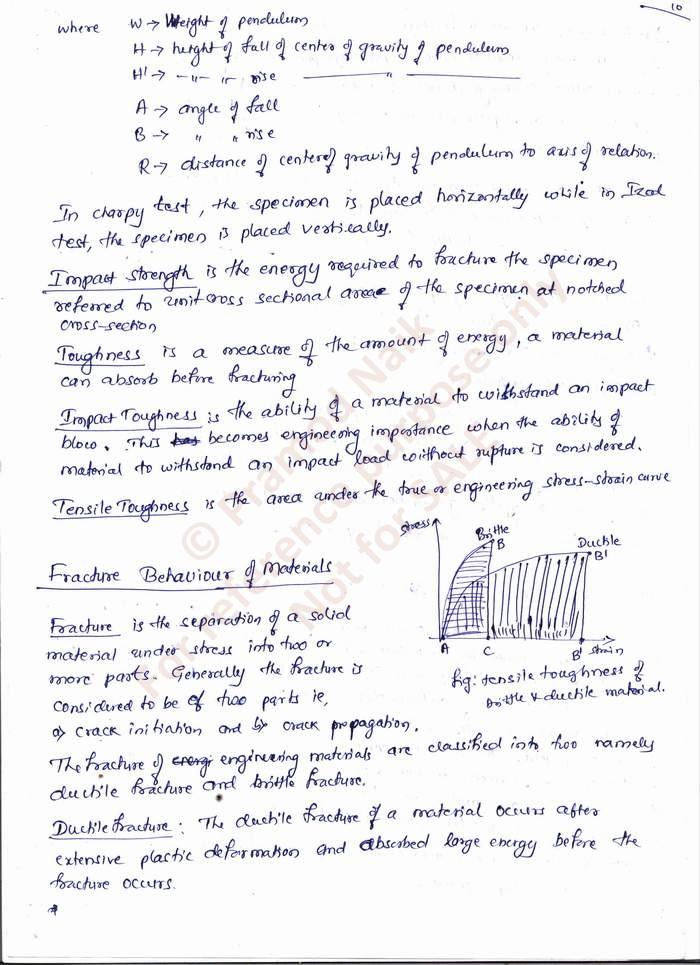 10
where W → Weight of pendulum
H → height of fall of center of gravity of pendulum
H' → -〃- 〃 rise 〃
A → angle of fall
B → 〃 〃 rise
R → distance of center of gravity of pendulum to axis of relation.
In charpy test, the specimen is placed horizontally while in Izod
test, the specimen is placed vertically.
Impact strength is the energy required to fracture the specimen
referred to unit cross sectional area of the specimen at notched
cross-section
Toughness is a measure of the amount of energy, a material
can absorb before fracturing
Impact Toughness is the ability of a material to withstand an impact
blow. This has becomes engineering importance when the ability of
material to withstand an impact load without rupture is considered.
Tensile Toughness is the area under the true or engineering stress-strain curve
stress
Brittle
B
Ductile
B'
A C B' strain
fig: tensile toughness of
brittle & ductile material.
Fracture Behaviour of Materials
Fracture is the separation of a solid
material under stress into two or
more parts. Generally the fracture is
considered to be of two parts ie,
a) crack initiation and b) crack propagation.
The fracture of energi engineering materials are classified into two namely
ductile fracture and brittle fracture.
Ductile fracture: The ductile fracture of a material occurs after
extensive plastic deformation and absorbed large energy before the
fracture occurs.
© Pramod Naik
For reference purpose only
Not for SALE